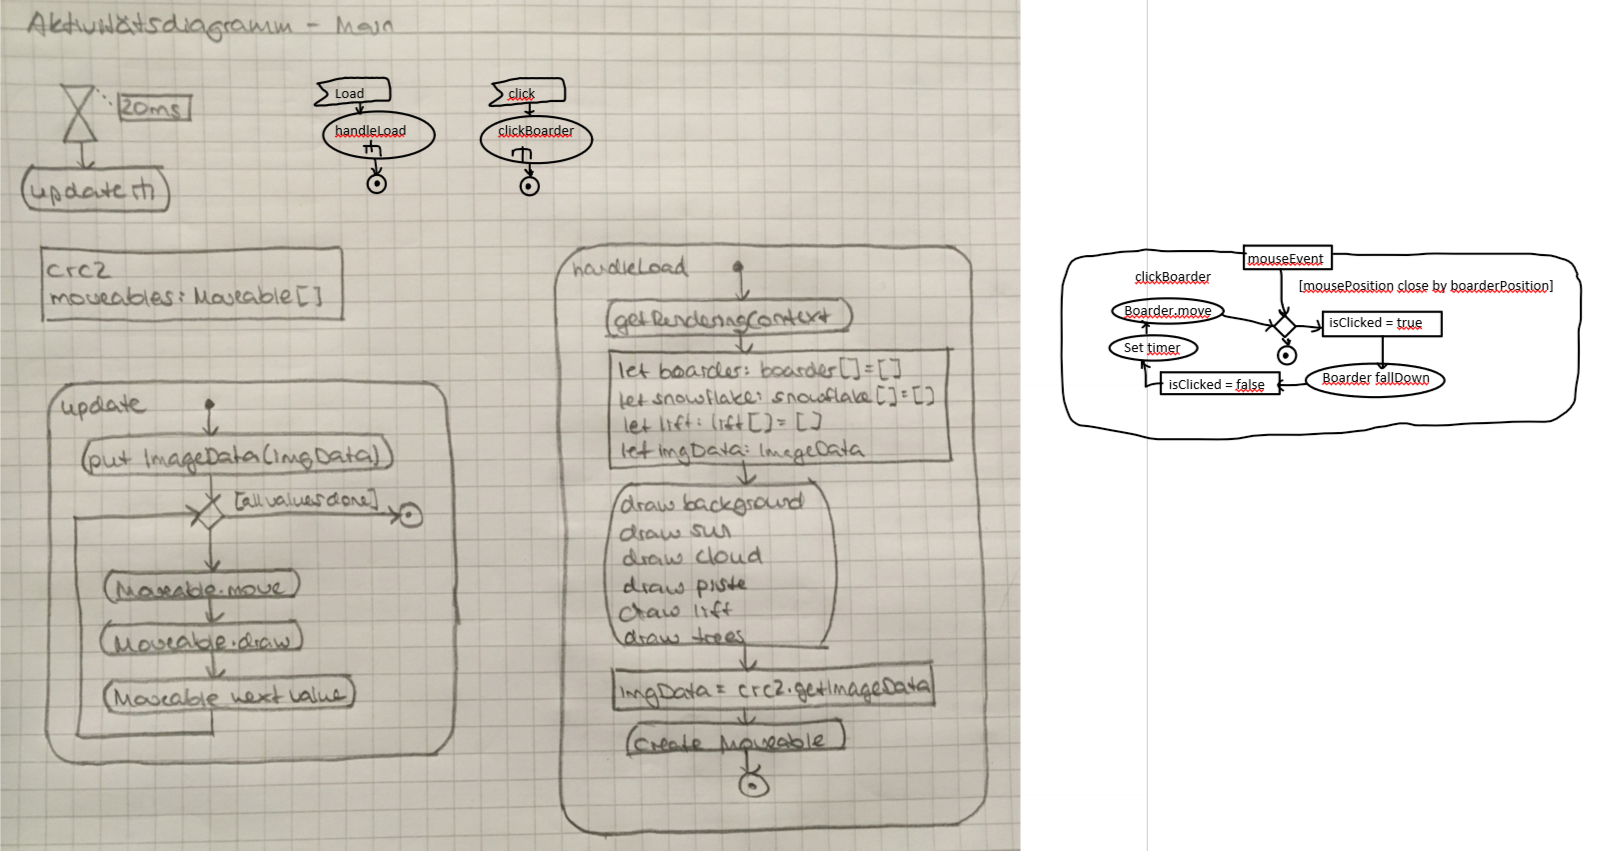 Aktivitätsdiagramm - Main
20ms
update
Load
handleLoad
click
clickBoarder
crc2
moveables: Moveable[]
update
put ImageData(imgData)
[all values done]
Moveable.move
Moveable.draw
Moveable next value
handleLoad
getRenderingContext
let boarder: boarder[]=[]
let snowflake: snowflake[]=[]
let lift: lift[]=[]
let imgData: ImageData
draw background
draw sun
draw cloud
draw piste
draw lift
draw trees
imgData = crc2.getImageData
create Moveable
mouseEvent
clickBoarder
[mousePosition close by boarderPosition]
Boarder.move
isClicked = true
Set timer
Boarder fallDown
isClicked = false